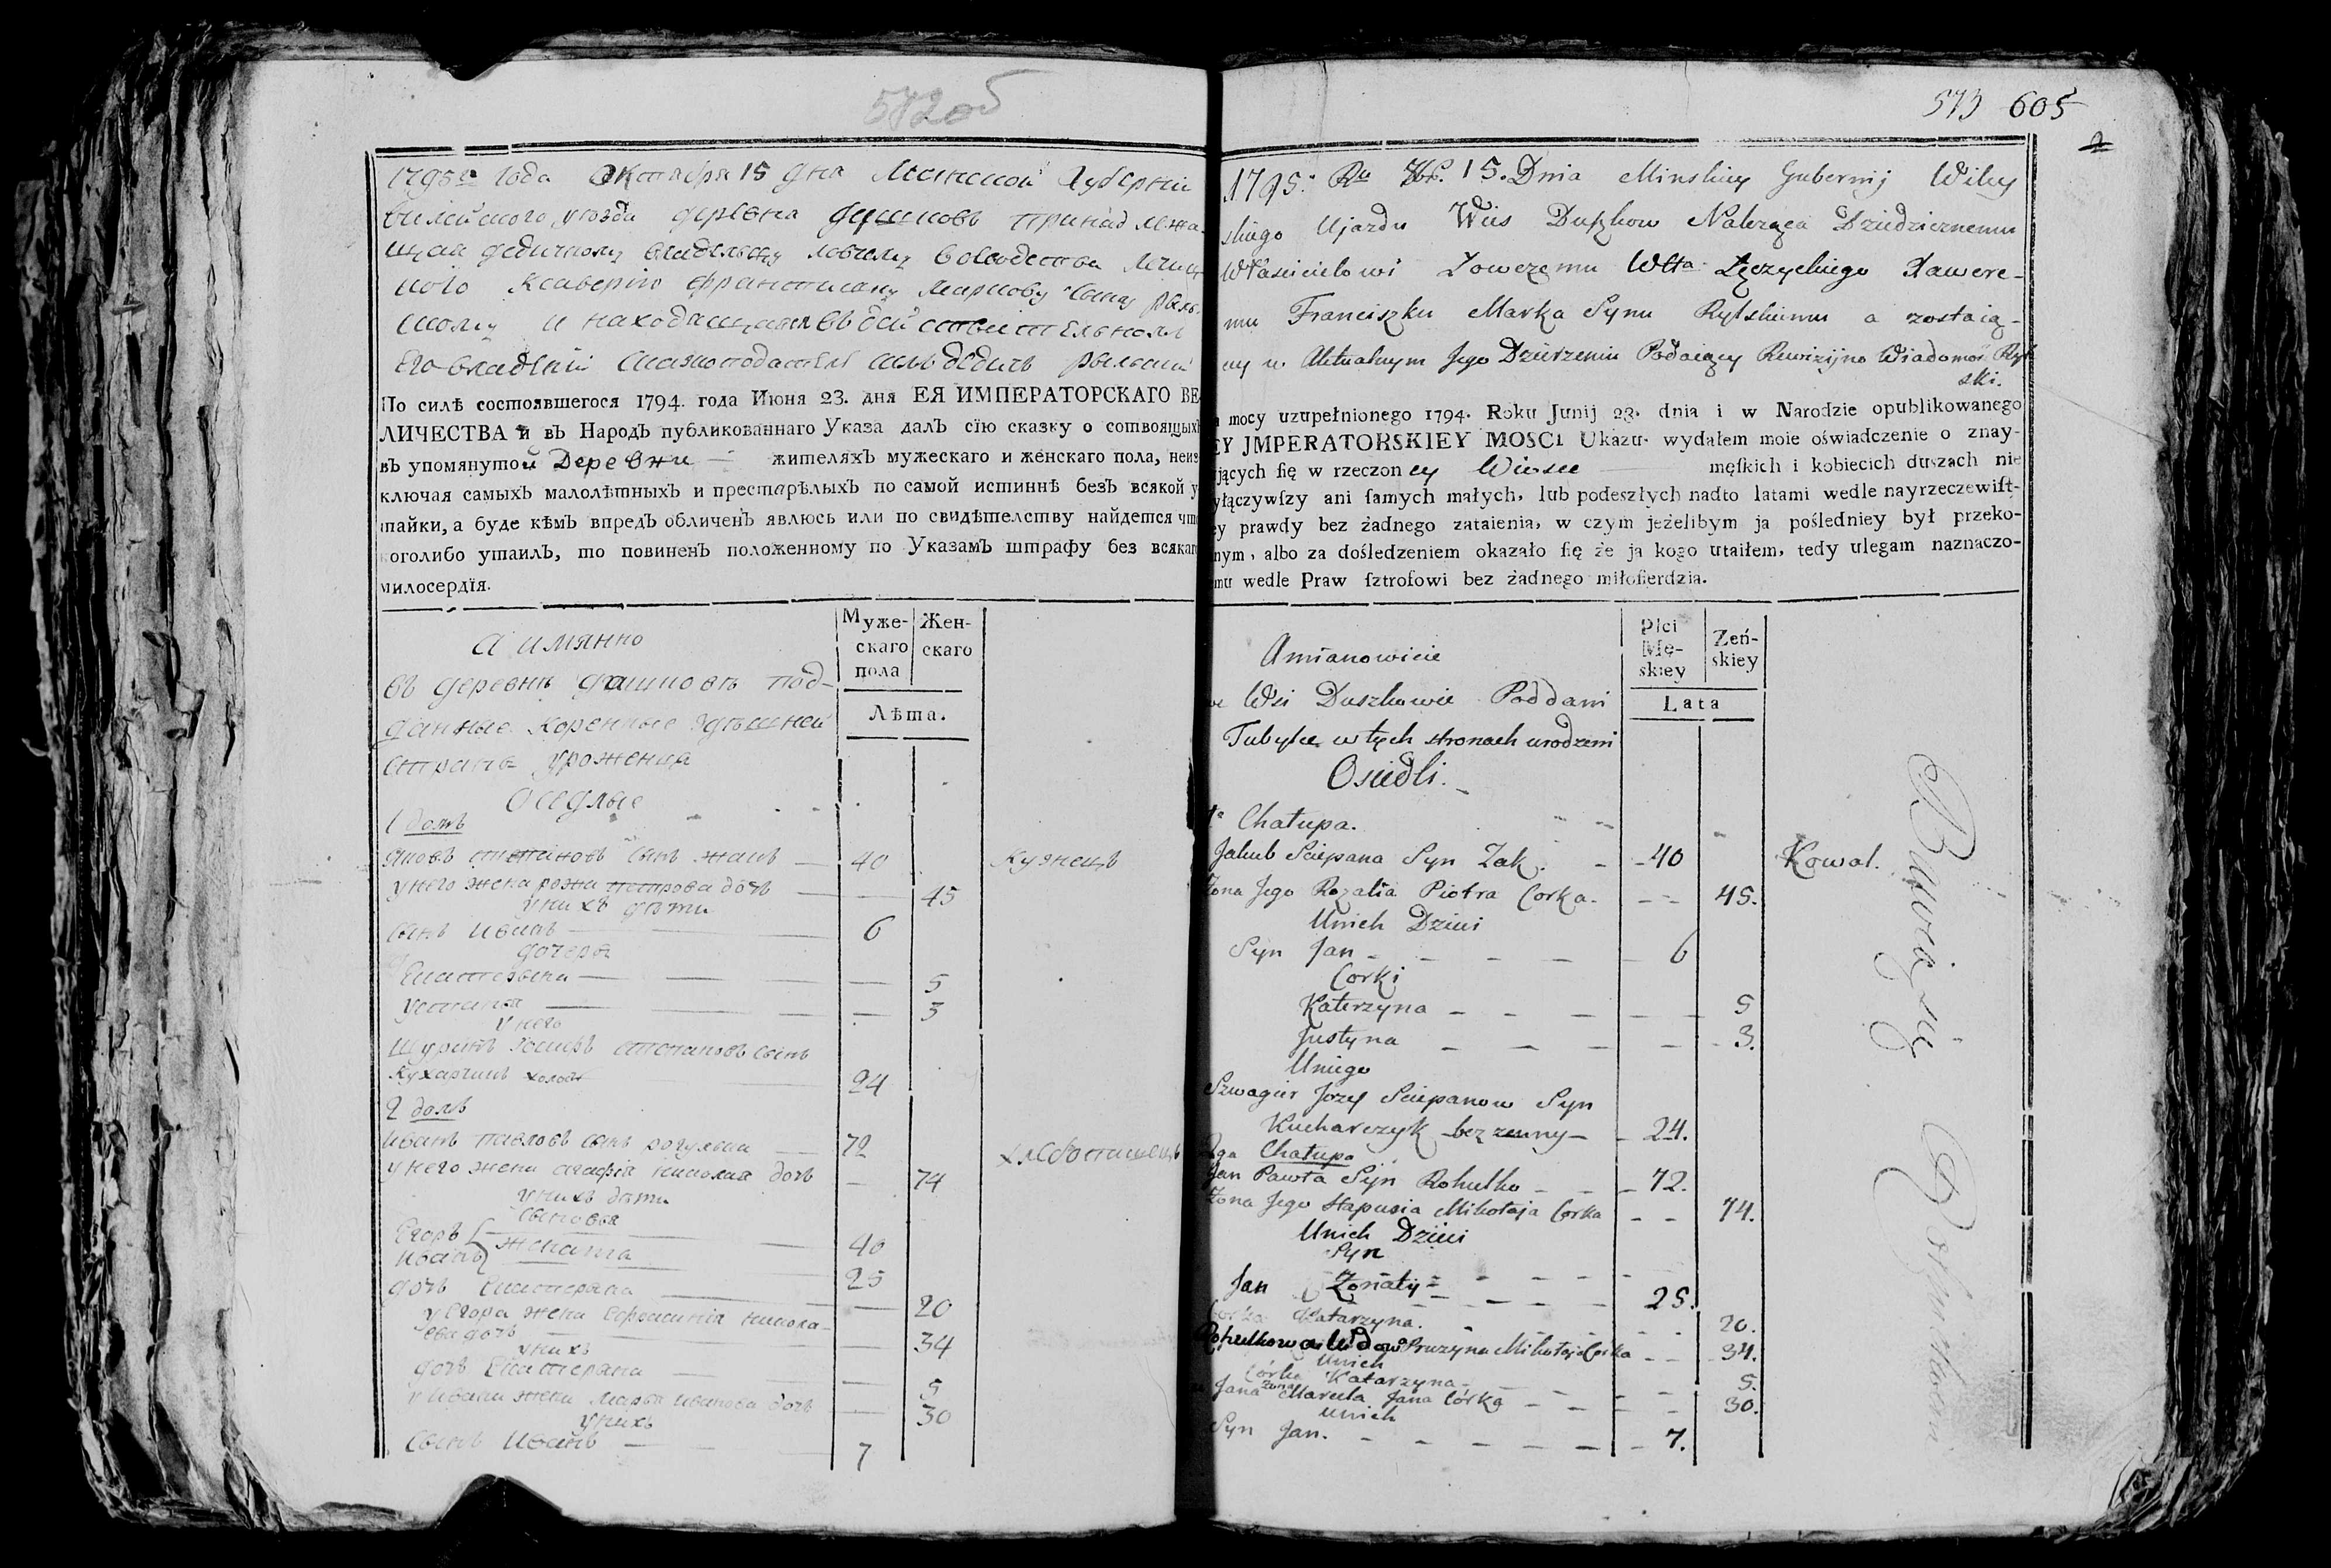 572 об
1795го Года Октября 15 дня Минской Губернии
Вилейского уезда деревна Душковъ принадлежа-
щая дедичному владельцу ловчему воеводства
Ксаверию Францишку Маркову сыну Рыль-
скому и находящаяся въ действительномъ
Его владении Рыльский
По силѣ состоявшегося 1794. года Июня 23. дня ЕЯ ИМПЕРАТОРСКАГО ВЕ-
ЛИЧЕСТВА и въ Народъ публикованнаго Указа далъ сїю сказку о сотвоящыхъ
въ упомянутой Деревни жителяхъ мужескаго и женскаго пола, неиз
ключая самыхъ малолѣтныхъ и престарѣлыхъ по самой истиннѣ безъ всякой у
тайки, а буде кѣмъ впредъ обличенъ явлюсь или по свидѣтелству найдется что
коголибо утаилъ, то повиненъ положенному по Указамъ штрафу без всякаго
милосердїя.
Муже-
скаго
пола
Жен-
скаго
Лѣта.
А имянно
въ деревни Дашковъ под-
данные коренные здешней
стране уроженца
Оседлые
1 домъ
Яковъ степановъ сынъ жакъ — 40 кузнецъ
у него жена рожа петрова дочъ — 45
у нихъ дети
сынъ иванъ — 6
дочери
Екатерына — 5
устинья — 3
у него
Щуринъ Iосифъ степановъ сынъ
Кухарчикъ холост 24
2 домъ
иванъ павловъ сынъ рогулька — 72
у него жена агафiя николая дочъ — 74
у нихъ дети
сыновья
Егоръ женаты — 40
иванъ — 25
дочъ Екатерына — 20
у егора жена никола-
ева дочъ — 34
у нихъ
дочъ Екатерына — 5
у ивана жена марья иванова дочъ — 30
у нихъ
сынъ иванъ — 7
573 605
2
1795. Ru 15. Dnia Minskiey Gubernij Wiley
skiego Ujazdu Wies Duszkow Należąca Dziedzicznemu
Właścicielowi Łowczemu Wtta Łęczyckiego Xawere-
mu Franciszku Marka Synu Rylskiemu a zostaią-
cey w Aktualnym Jego Dzierzeniu Podaiący Rewizijne Wiadomość Ryl
ski.
mocy uzupełnionego 1794. Roku Junij 23. dnia i w Narodzie opublikowanego
EY JMPERATORSKIEY MOSCI Ukazu. wydałem moie oświadczenie o znay-
jących się w rzeczoney Wiosce męskich i kobiecich duszach nie
yłączywszy ani samych małych, lub podeszłych nadto latami wedle nayrzeczewist-
ey prawdy bez żadnego zataienia, w czym jeżelibym ja pośledniey był przeko-
nym, albo za dośledzeniem okazało się że ja kogo utaiłem, tedy ulegam naznaczo-
emu wedle Praw sztrofowi bez żadnego miłosierdzia.
Płci
Mę-
skiey
Żeń-
skiey
Lata
Amianowicie
we Wsi Duszkowie Poddani
Tubylce w tych stronach urodzeni
Osiedli.
1a Chałupa.
Jakub Sciepana Syn Zak. — 40 Kowal.
Zona Jego Rozalia Piotra Corka. — 45.
Unich Dzieci
Syn Jan — 6
Corki
Katerzyna — 5
Justyna — 3.
Uniego
Szwagier Jozef Sciepanow Syn
Kucharczyk bezzenny — 24.
2ga Chałupa
Jan Pawła Syn Rohulko — 72.
Zona Jego Hapusia Mikołaja Corka — 74.
Unich Dzieci
Syn
Jan Zonaty — 25.
Corka Katarzyna. — 20.
Rohulkowa Wdowa Pruzyna Mikołaja Corka — 34.
Unich
Córka Katarzyna — 5.
Jana zona Maryla Jana Córka — 30.
Unich
Syn Jan. — 7.